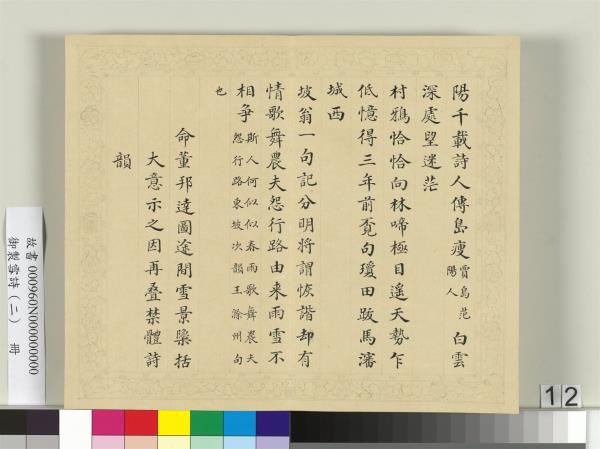 陽千載詩人傳島瘦賈島范陽人白雲
深處望迷茫
村鴉恰恰向林啼極目遙天勢乍
低憶得三年前覓句瓊田跋馬瀋
城西
坡翁一句記分明將謂恢諧却有
情歌舞農夫怨行路由來雨雪不
相爭斯人何似似春雨歌舞農夫怨行路東坡次韻王滁州句
也
命董邦達圖途間雪景檃括
大意示之因再疊禁體詩
韻
故書000960N000000000
御製雪詩(二) 冊
12